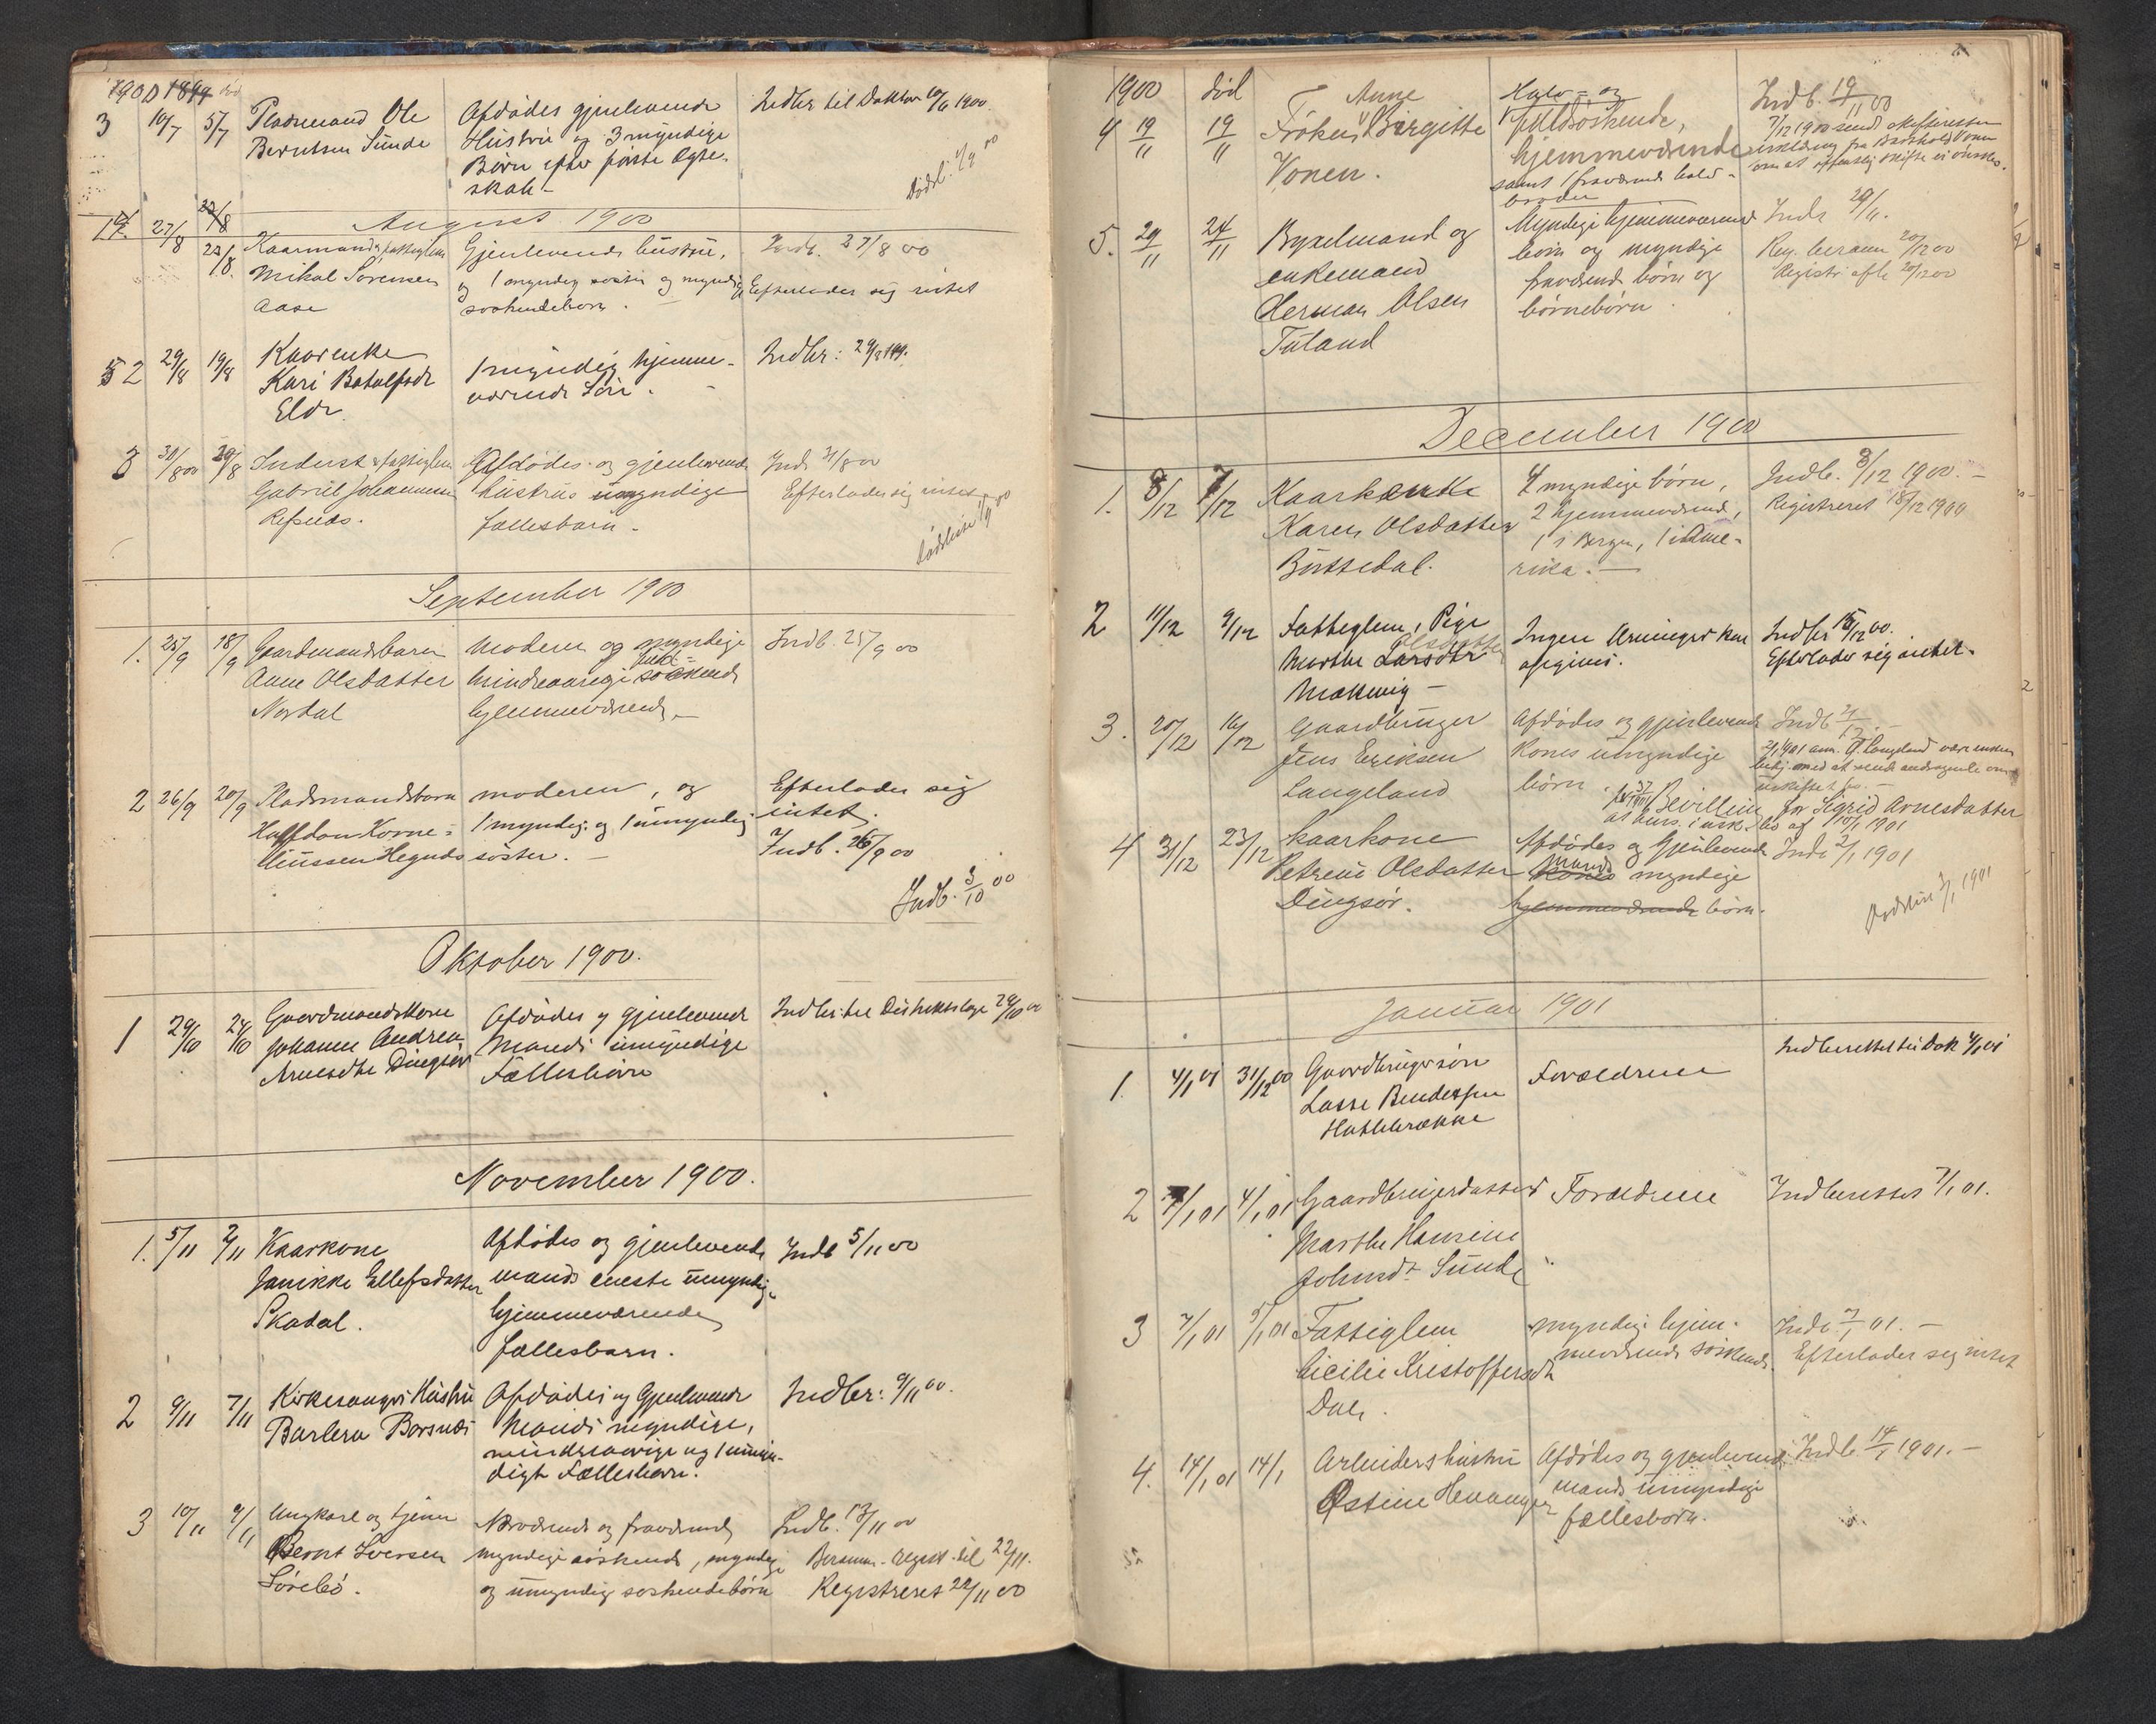 1900 1899 död
3 10/7 5/7 Pladsmand Ole Afdødes gjenlevende Indbr til Doktor 10/7 1900.
Berntsen Sunde Hustru og 3 myndige
Børn efter første Ægte-
skab - Dødsl. 1/9 00
August 1900
1. 27/8 22/8 Kaarmand & fattiglem Gjenlevende hustru, Indb. 27/8 00
Mikal Sørensen og 1 myndig søster og myndige Efterlader sig intet
Aase søskendebørn.
2 29/8 19/8 Kaarenke 1 myndig hjemme- Indbr: 29/8
Kari Botolfsdr værende Søn.
Eldr.
3 31/8 00 29/8 Inderst & fattiglem Afdødes og gjenlevende Indb 31/8 00
Gabriel Johannesen hustrus umyndige Efterlader sig intet
Refsnes. fællesbarn. Dødsliste 1/9 00
September 1900
1. 25/9 18/9 Gaardmandsbarn Moderen og myndige Indb. 25/9 00
Anne Olsdatter mindreaarige søskende
Nordal hjemmeværende.
2 26/9 20/9 Pladsmandsbarn moderen, og Efterlader sig
Halfdan Korne- 1 myndig og 1 umyndig intet.
liussen Hegnds søster. - Indb. 26/9 00
Indb. 3/10 00
Oktober 1900.
1 29/10 24/10 Gaardmandskone Afdødes og gjenlevende Indbr. til Distriktslæge 29/10 00
Johanne Andrea Mands umyndige
Arnesdtr Dingsør Fællesbørn
November 1900.
1. 5/11 2/11 Kaarkone Afdødes og gjenlevende Indb 5/11 00
Janikke Ellefsdatter mands eneste umyndige
Skadal. hjemmeværende
fællesbarn.
2 9/11 7/11 Kirkesangers Hustru Afdødes og Gjenlevende Indbr: 9/11 00.
Barbera Borsnes Mands myndige,
mindreaarige og 1 umyn-
digt Fællesbørn.
3 10/11 9/11 Ungkarl og tjener Nærværende og fraværende Indb. 13/11 00
Bernt Iversen myndige søskende, myndige Beramm. Regist. til 22/11.
Sørebø. og umyndig søskendebørn Registreret 22/11 00
1900 død
4 19/11 19/11 Frøken Anne Birgitte Halv- og Indb. 19/11 00
Vonen. fuldsøskende, 7/12 1900 sendt
hjemmeværende
samt 1 fraværende halv- om at offentlig skifte ei ønskes.
broder
5. 29/11 24/11 Byxelmand og Myndige hjemmeværende Indb 29/11.
enkemand børn og myndige Reg. beram 20/12 00
Herman Olsen fraværende børn og Registr afh 20/12 00
Tuland børnebørn.
December 1900
1. 8/12 7/12 Kaarkenke 4 myndige børn, Indb. 8/12 1900. -
Karen Olsdatter 2 hjemmeværend, Registreret 18/12 1900
Birttedal. 1 i Bergen, 1 i Ame-
rika. -
2 11/12 9/12 Fattiglem, Pige Ingen Arvinger kan Indbr 15/12 00.
Marthe Larsdtr Olsdatter opgives. Efterlader sig intet.
Makevig -
3. 20/12 16/12 Gaardbruger Afdødes og gjenlevende Indb 21/12 -
Jens Eriksen Kones umyndige
Langeland børn.
Bevilling for Sigrid Arnesdatter
at hens. i uskiftet bo af 10/1 1901
4 31/12 23/12 Kaarkone Afdødes og Gjenlevende Indb 2/1 1901
Petrine Olsdatter Kones mands myndige
Dingsør. hjemmeværende børn. Dødsliste 2/1 1901
Januar 1901
1. 4/1 01 31/12 00 Gaardbrugersøn Forældrene Indberettet til Dok 4/1 01
Lasse Bendixsen
Hatlebrække
2 7/1 01 4/1 01 Gaardbrugerdatter Forældrene Indberettes 7/1 01.
Marthe Hansine
Johnsdr Sunde
3 7/1 01 5/1 01 Fattiglem myndige hjem- Indb 7/1 01. -
Cicilie Kristoffersdtr meværende søskende. Efterlader sig intet
Dale.
4. 14/1 01 14/1 Arbeiders hustru Afdødes og gjenlevende Indb 14/1 1901. -
Østine Hevanger mands umyndige
fællesbørn.